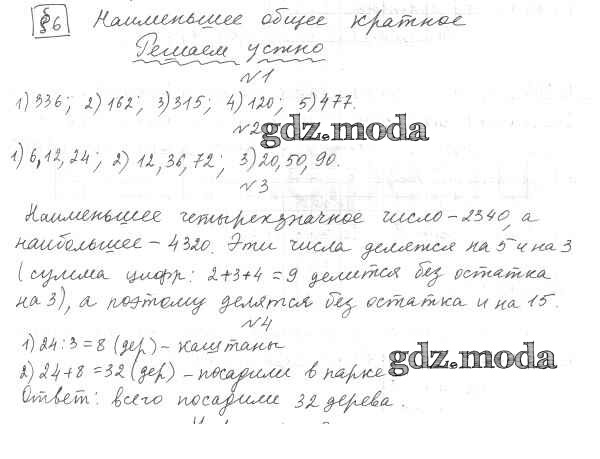 §6 Наименьшее общее кратное
Решаем устно
№1
1) 336; 2) 162; 3) 315; 4) 120; 5) 477.
№2
gdz.moda
1) 6, 12, 24; 2) 12, 36, 72; 3) 20, 50, 90.
№3
Наименьшее четырехзначное число – 2340, а
наибольшее – 4320. Эти числа делятся на 5 и на 3
(сумма цифр: 2+3+4=9 делится без остатка
на 3), а поэтому делятся без остатка и на 15.
№4
1) 24:3=8 (дер) – каштаны
gdz.moda
2) 24+8=32 (дер) – посадили в парке.
Ответ: всего посадили 32 дерева.